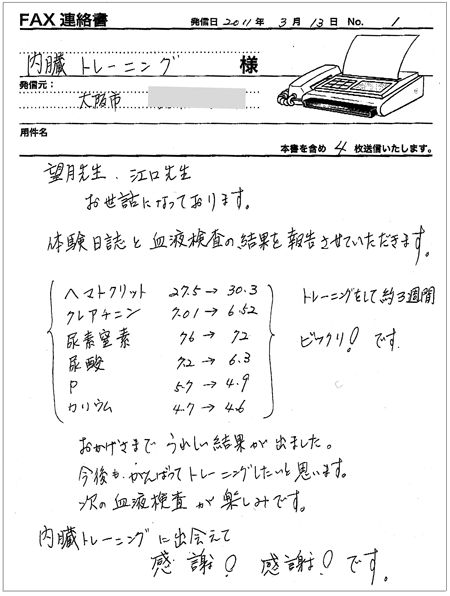 FAX連絡書 発信日 2011年 3月 13日 No. 1
内臓トレーニング 様
発信元:
大阪市
用件名
本書を含め 4 枚送信いたします。
望月先生、江口先生
お世話になっております。
体験日誌と血液検査の結果を報告させていただきます。
ヘマトクリット 27.5 → 30.3 トレーニングをして約3週間
クレアチニン 7.01 → 6.52
尿素窒素 76 → 72 ビックリ! です。
尿酸 7.2 → 6.3
P 5.7 → 4.9
カリウム 4.7 → 4.6
おかげさまで うれしい結果が出ました。
今後も がんばってトレーニングしたいと思います。
次の血液検査が楽しみです。
内臓トレーニングに出会えて
感謝! 感謝! です。